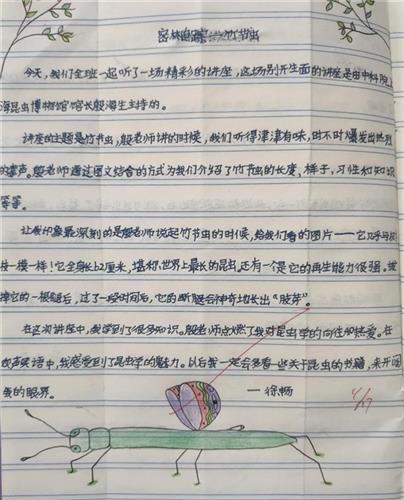 密林追踪——竹节虫
今天,我们全班一起听了一场精彩的讲座,这场别开生面的讲座是由中科院上
海昆虫博物馆馆长殷海生主持的。
讲座的主题是竹节虫,殷老师讲的时候,我们听得津津有味,时不时爆发出热烈
的掌声。殷老师通过图文结合的方式为我们介绍了竹节虫的长度、样子,习性和知识
等等。
让我印象最深刻的是殷老师说起竹节虫的时候,给我们看的图片——它几乎与树
枝一模一样!它全身长62厘米,堪称世界上最长的昆虫,还有一个是它的再生能力很强。
掉它的一根腿后,过了一段时间后,它的断腿会神奇地长出“肢芽”。
在这次讲座中,我学到了很多知识。殷老师点燃了我对昆虫学的向往和热爱。在
欢声笑语中,我感受到了昆虫学的魅力。以后我一定会多看一些关于昆虫的书籍,来开阔
我的眼界。
——徐畅
4/17